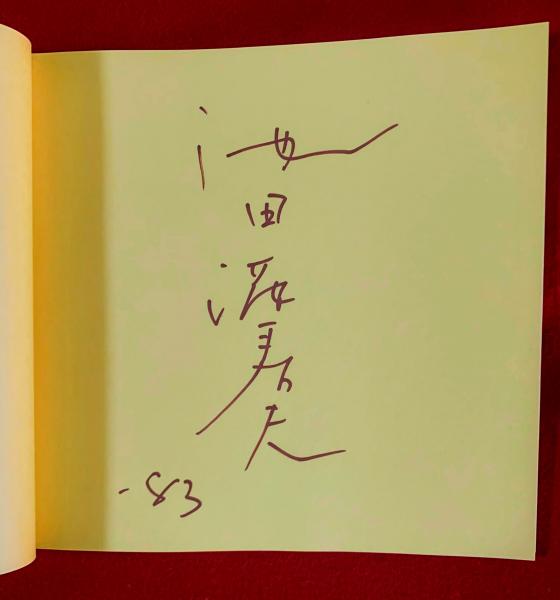 池田満寿夫
-83